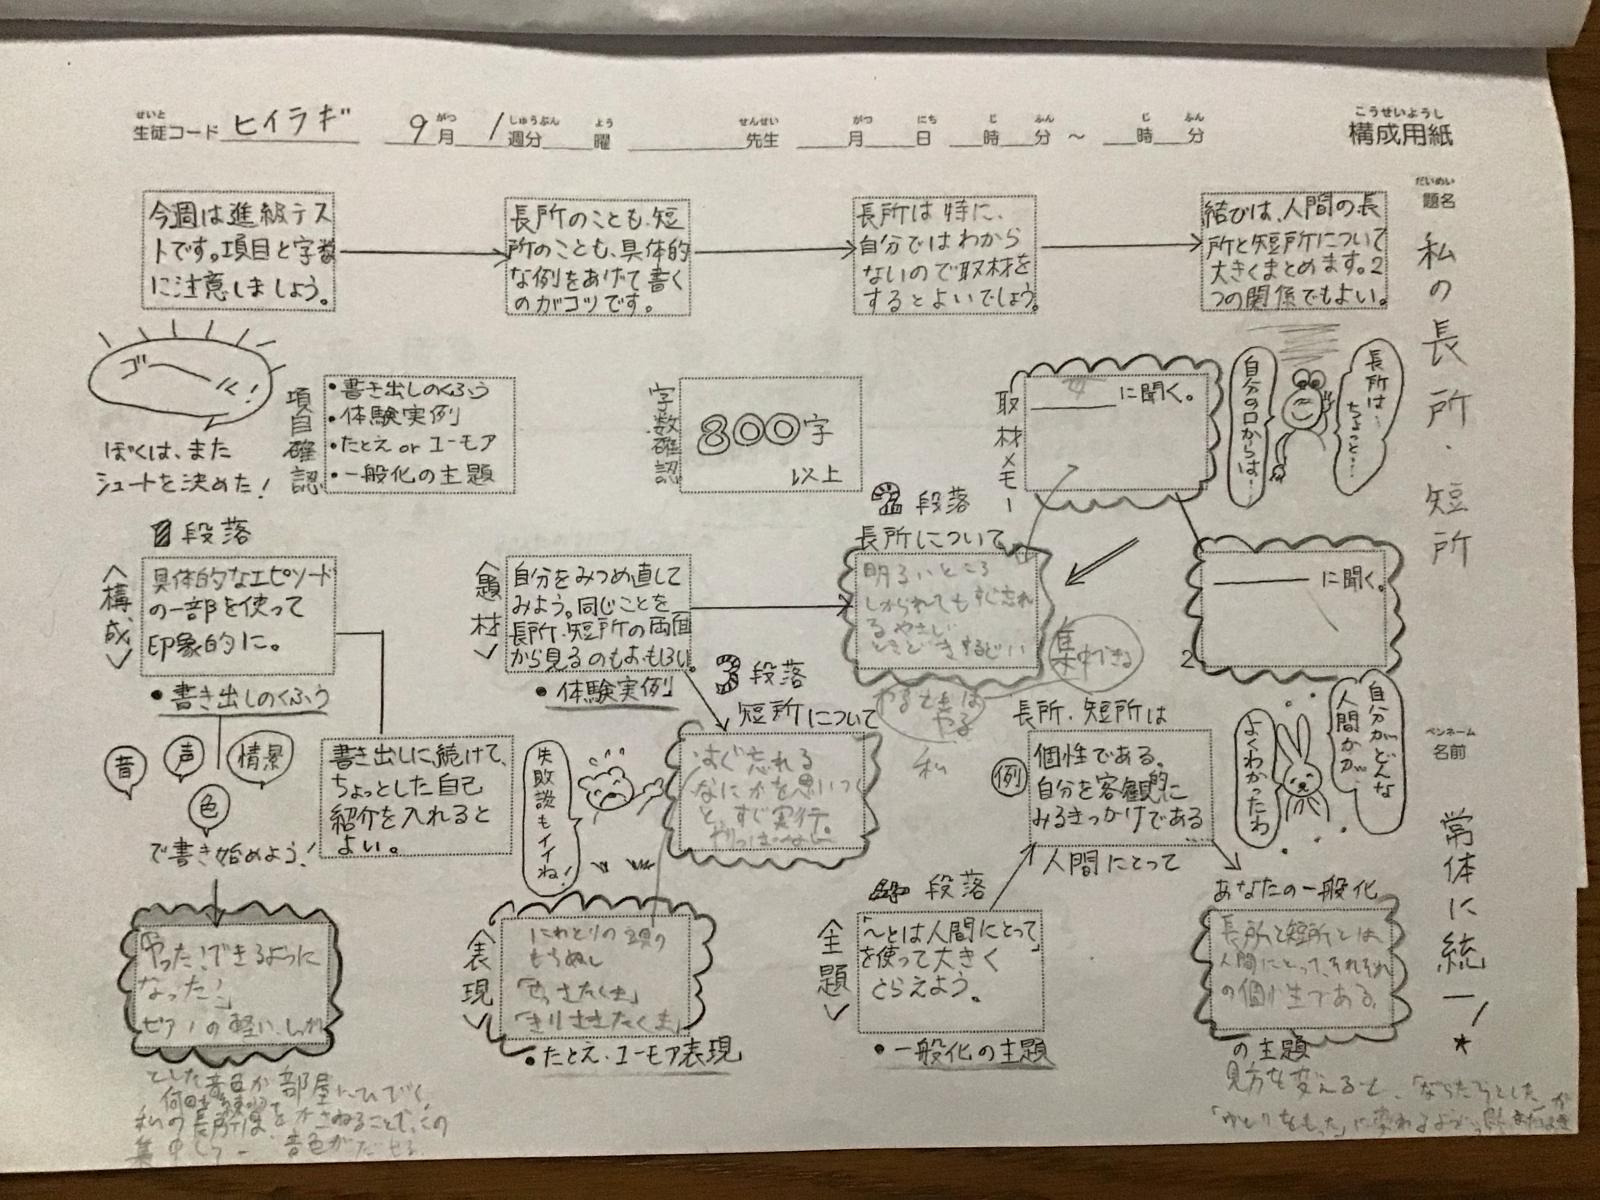 せいと
生徒コード ヒイラギ 9月 1週分 曜 先生 月 日 時 分 〜 時 分
こうせいようし
構成用紙
だいめい
題名
私の長所・短所
ペンネーム
名前
常体に統一!★
今週は進級テス
トです。項目と字数
に注意しましょう。
長所のことも、短
所のことも、具体的
な例をあげて書く
のがコツです。
長所は特に、
自分ではわから
ないので取材を
するとよいでしょう。
結びは、人間の長
所と短所について
大きくまとめます。2
つの関係でもよい。
ゴーール!
ぼくは、また
シュートを決めた!
項目確認
・書き出しのくふう
・体験実例
・たとえ or ユーモア
・一般化の主題
字数確認
800字
以上
取材メモー
に聞く。
自分の口からは…
長所は…ちょっと…
2
に聞く。
自分がどんな
人間かが
よくわかったわ
1段落
<構成>
具体的なエピソード
の一部を使って
印象的に。
・書き出しのくふう
音
声
情景
色
で書き始めよう!
書き出しに続けて、
ちょっとした自己
紹介を入れると
よい。
やった!できるように
なった!」
ピアノの軽い
とした音色が部屋にひびく。
私の長所は
集中して
音色がだせる
<題材>
自分をみつめ直して
みよう。同じことを
長所・短所の両面
から見るのもおもしろい。
・体験実例
2段落
長所について
明るいところ
しかられてもすぐ忘れ
る やさしい
集中できる
やるときは
やる
私
3段落
短所について
すぐ忘れる
なにかを思いつく
と、すぐ実行。
失敗談もイイね!
<表現>
にわとりの
もちぬし
・たとえ・ユーモア表現
4段落
<主題>
「〜とは人間にとって」
を使って大きく
とらえよう。
・一般化の主題
長所・短所は
例
個性である。
自分を客観的に
みるきっかけである
…
人間にとって
あなたの一般化
長所と短所とは、
人間にとって、それぞれ
の個性である。
の主題
見方を変えると、
「ゆとりをもった」に変わる